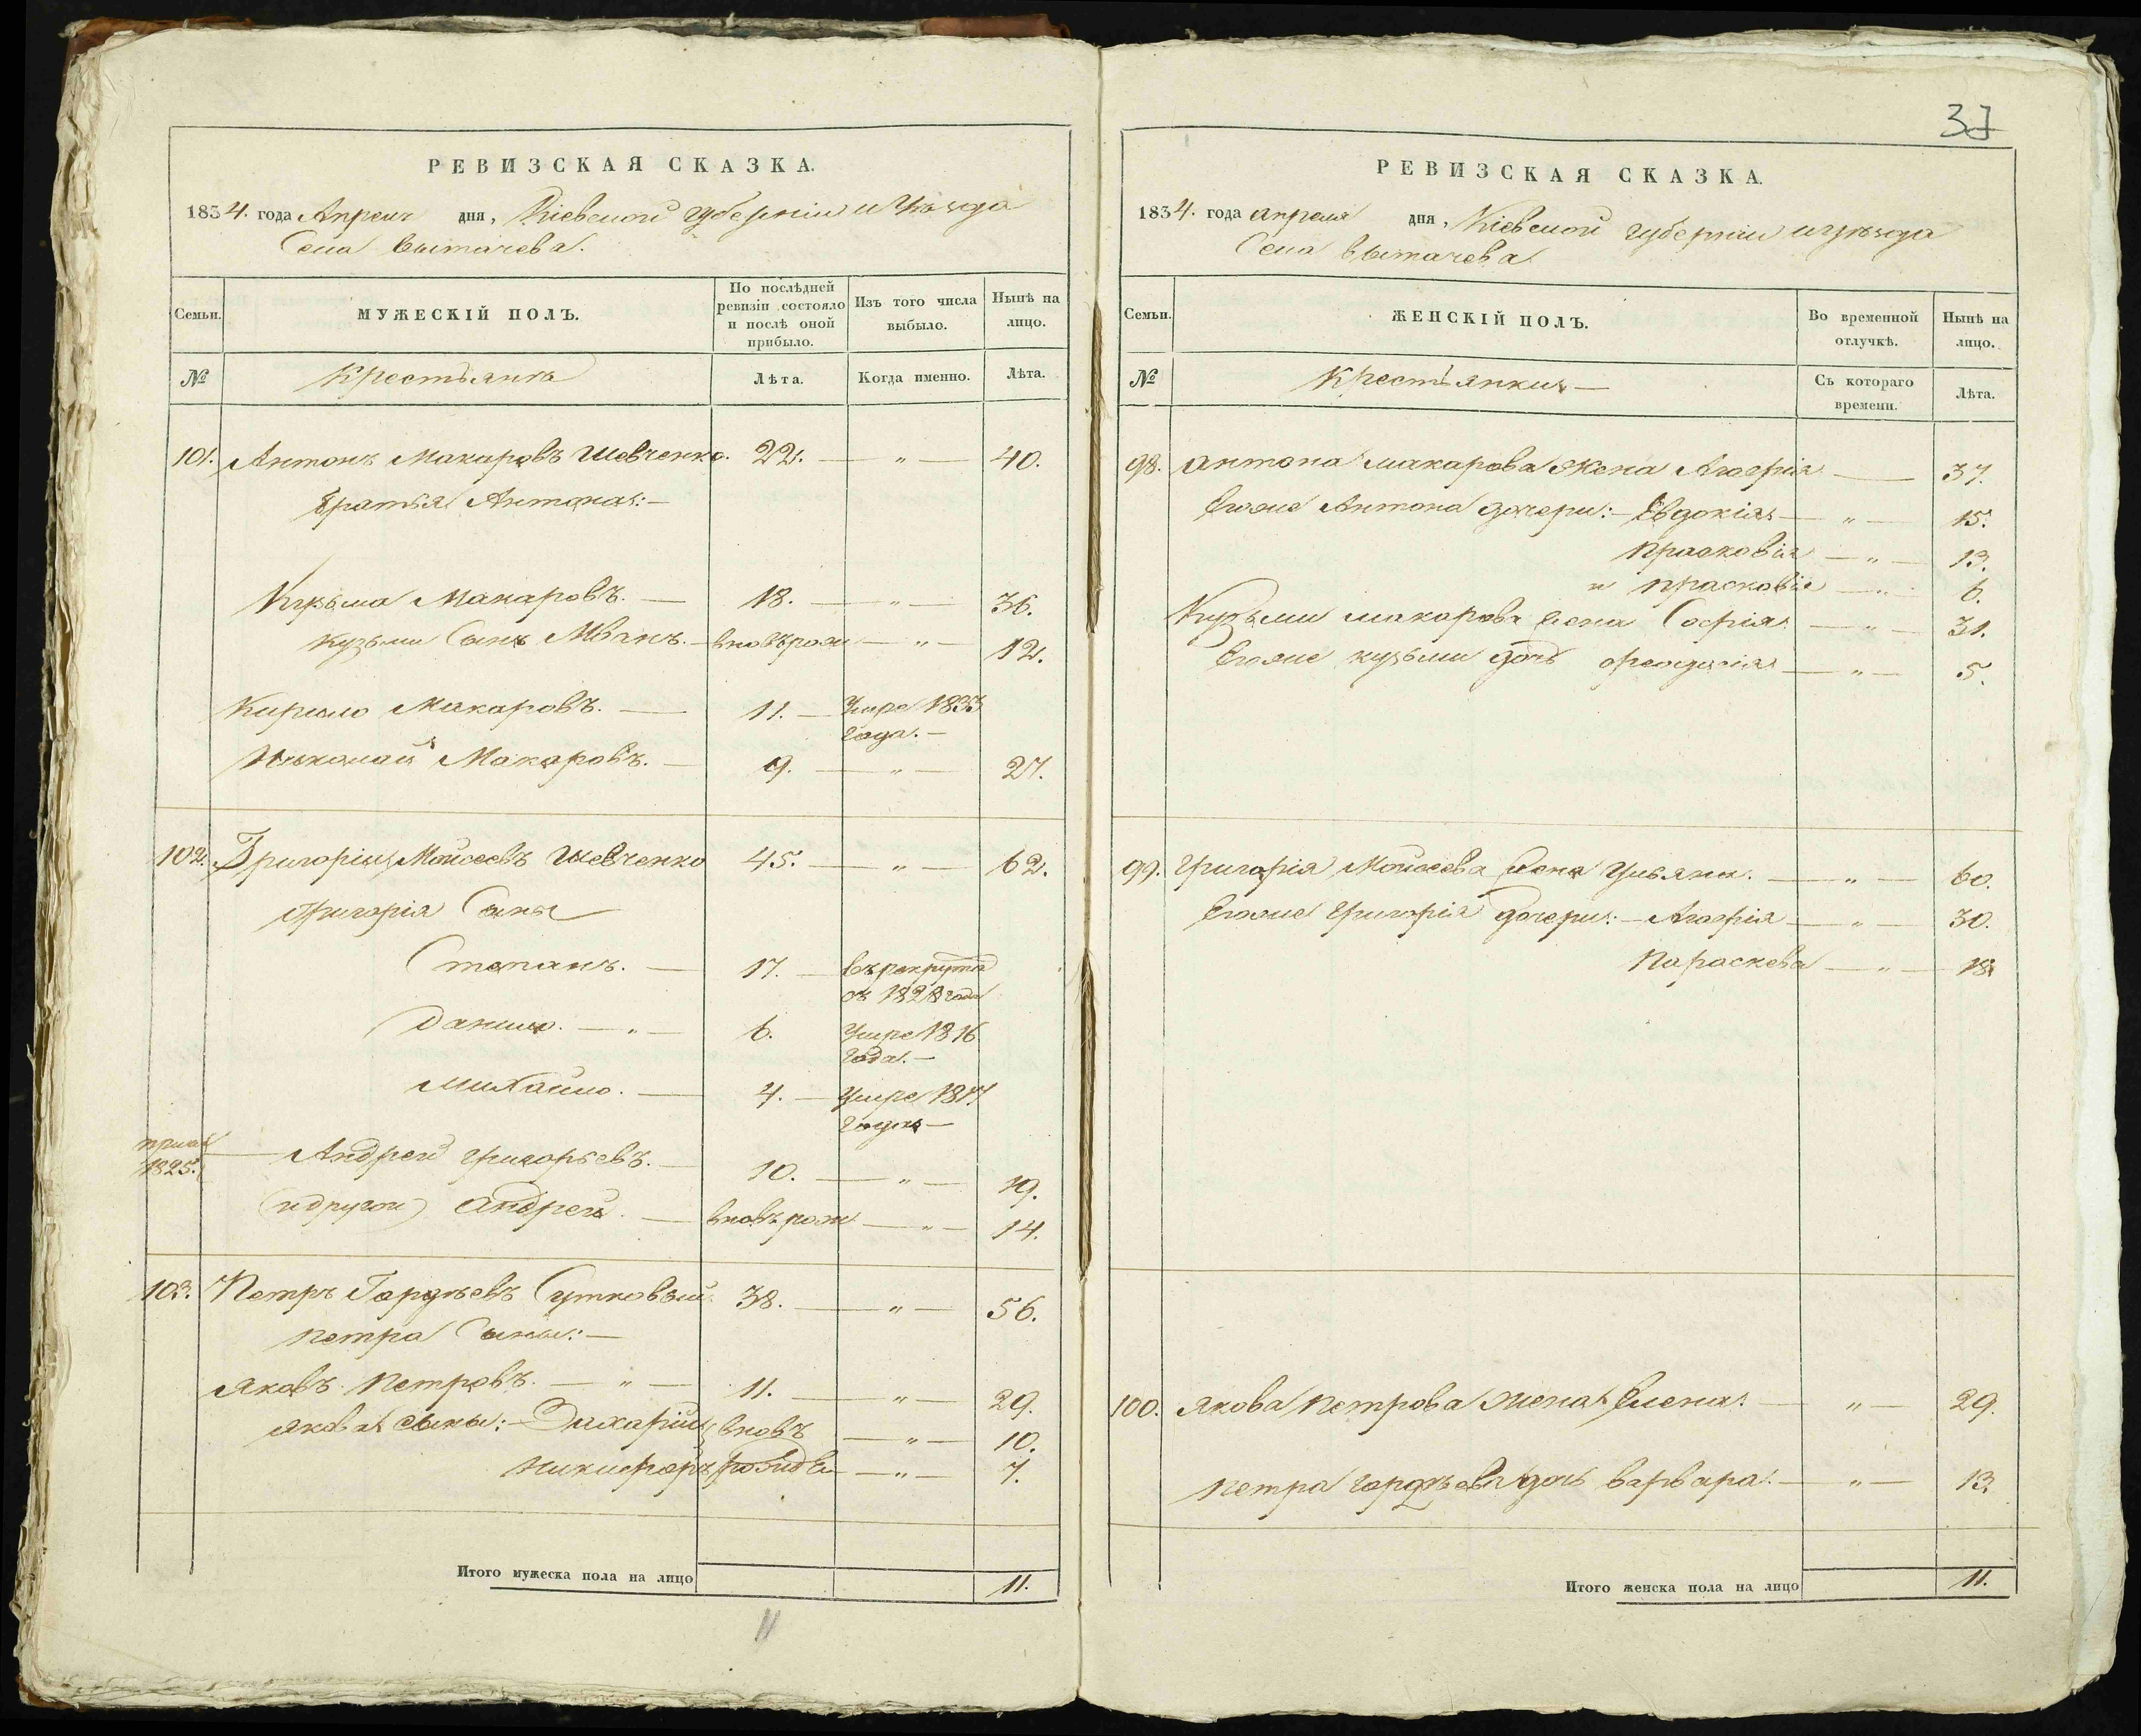 37
РЕВИЗСКАЯ СКАЗКА.
1834. года Апреля дня, Кіевской губерніи и уѣзда
Села Вытачева.
Семьи.
МУЖЕСКІЙ ПОЛЪ.
По послѣдней ревизіи состояло и послѣ оной прибыло.
Изъ того числа выбыло.
Нынѣ на лицо.
№
Крестьянъ
Лѣта.
Когда именно.
Лѣта.
101. Антонъ Макаровъ Шевченко. 22. — „ — 40.
Братья Антона:—
Кузьма Макаровъ. — 18. — „ — 36.
Кузьми Сынъ Иванъ. — вновърож — „ — 12.
Кирило Макаровъ. — 11. — Умре 1833
года. —
Николай Макаровъ. — 9. — „ — 27.
102. Григорій Мойсеевъ Шевченко 45. — „ — 62.
Григорія Сыны
Степанъ. — 17. — въ рекрута
съ 1828 года
Данило. — „ — 6. Умре 1816
года. —
Михайло. — 4. — Умре 1817
года —
1825. Андрей Григорьевъ. — 10. — „ — 19.
(и другой) Андрей. — вновърож — „ — 14.
103. Петръ Гордѣевъ Сутковый 38. — „ — 56.
Петра Сыны:—
Яковъ Петровъ. — „ — 11. — „ — 29.
Якова сыны:— Захарій вновъ — „ — 10.
Никифоръ рожден — „ — 7.
Итого мужеска пола на лицо 11.
11
РЕВИЗСКАЯ СКАЗКА.
1834. года апреля дня, Кіевской губерніи и уѣзда
Села Вытачева
Семьи.
ЖЕНСКІЙ ПОЛЪ.
Во временной отлучкѣ.
Нынѣ на лицо.
№
Крестьянки —
Съ котораго времени.
Лѣта.
98. Антона Макарова жена Агафія — 37.
Егоже Антона дочери:— Евдокія — „ — 15.
Прасковія — „ — 13.
и Прасковіе — „ 6.
Кузьми Макарова жена Софія — „ — 31.
Егоже Кузьми дочь Феодосія — „ — 5.
99. Григорія Мойсеева жена Ульяна. — „ — 60.
Егоже Григорія дочери:— Агафія — „ — 30.
Параскева — „ — 18.
100. Якова Петрова жена Елена. — „ — 29.
Петра Гордѣева дочь Варвара. — „ — 13.
Итого женска пола на лицо 11.